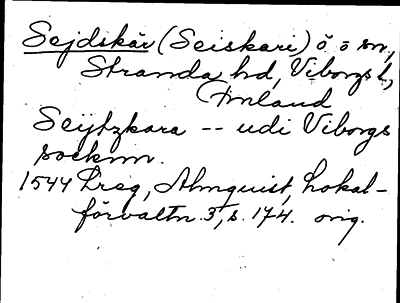 Sejdskär (Seiskari) ö o sn,
Stranda hd, Viborgs l,
Finland
Seytzkara -- udi Viborgs
socknn.
1544 Lreg, Almquist, Lokal-
förvaltn. 3, s. 174. orig.